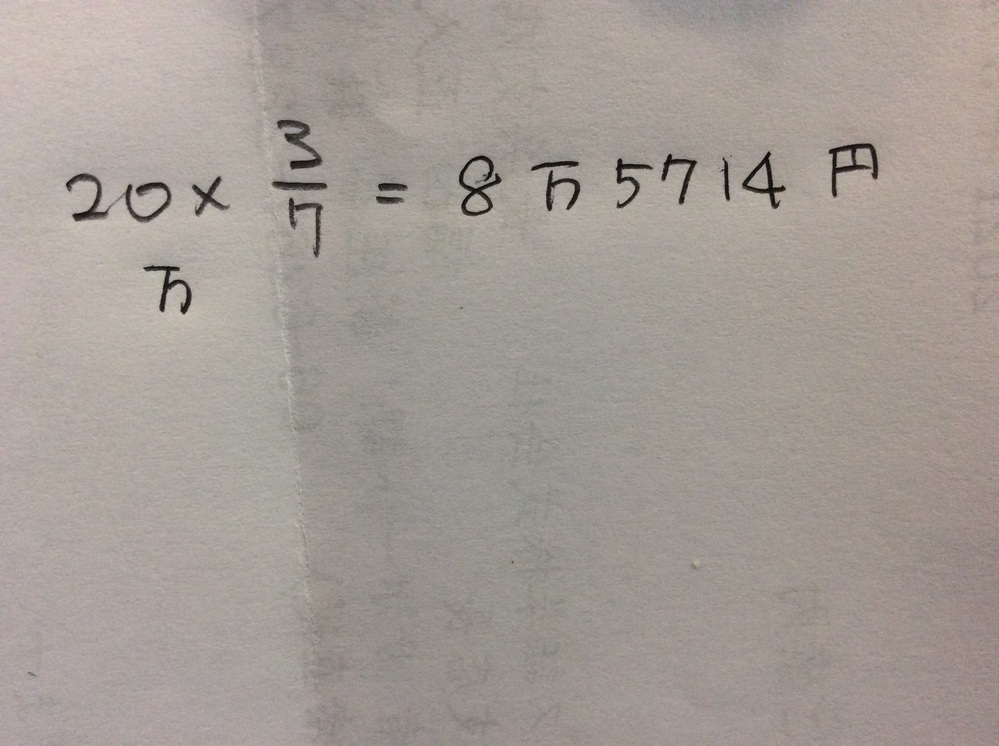 20× 3/7 = 8万5714円
万